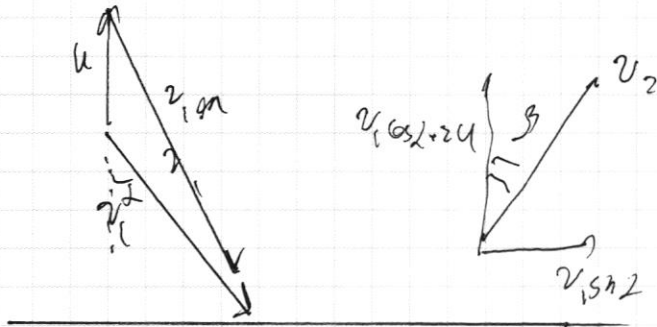 u
v₁ отн
α
v₁
v₁cosα+2u
β
v₂
v₁sinα